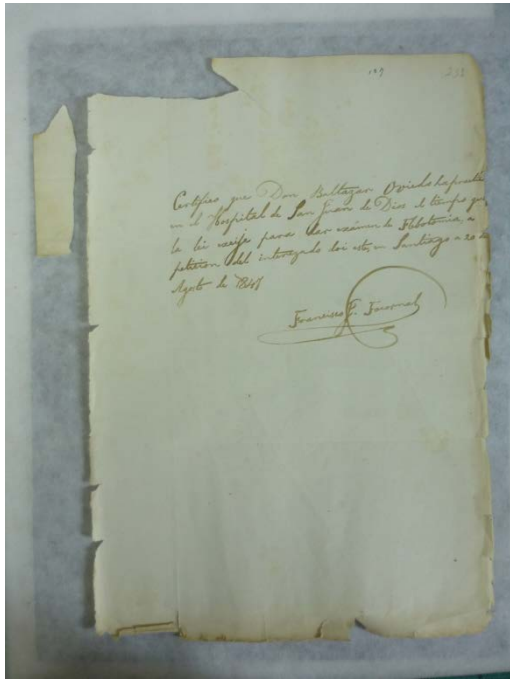 127 232
Certifico que Don Baltazar Oviedo ha practi
en el Hospital de San Juan de Dios el tiempo que
la lei exije para dar exámen de Flebotomia, a
peticion del interezado doi este, en Santiago a 20 de
Agosto de 1847
Francisco F.